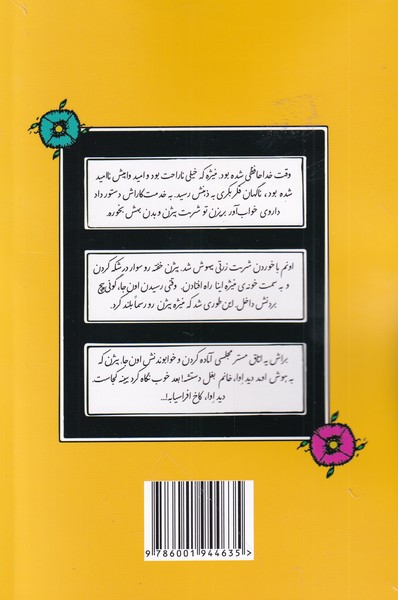 وقت خداحافظی شده بود. منیژه که خیلی ناراحت بود و امید وابیش ناامید
شده بود، ناگهان فکر بکری به ذهنش رسید. به خدمتکاراش دستور داد
داروی خواب‌آور بریزن تو شربت بیژن و بدن بهش بخوره.
اونم با خوردن شربت زرتی بیهوش شد. بیژن خفته رو سوار درشکه کردن
و به سمت خونه‌ی منیژه اینا راه افتادن. وقتی رسیدن اون جا، گونی پیچ
بردنش داخل. این طوری شد که منیژه بیژن رو رسماً بلند کرد.
براش یه اتاق مستر مجلسی آماده کردن و خوابوندنش اون جا. بیژن که
به هوش اومد دید اِوا، خانم بغل دستشه! بعد خوب نگاه کرد ببینه کجاست.
دید اِوا، کاخ افراسیابه!...
9 786001 944635 >